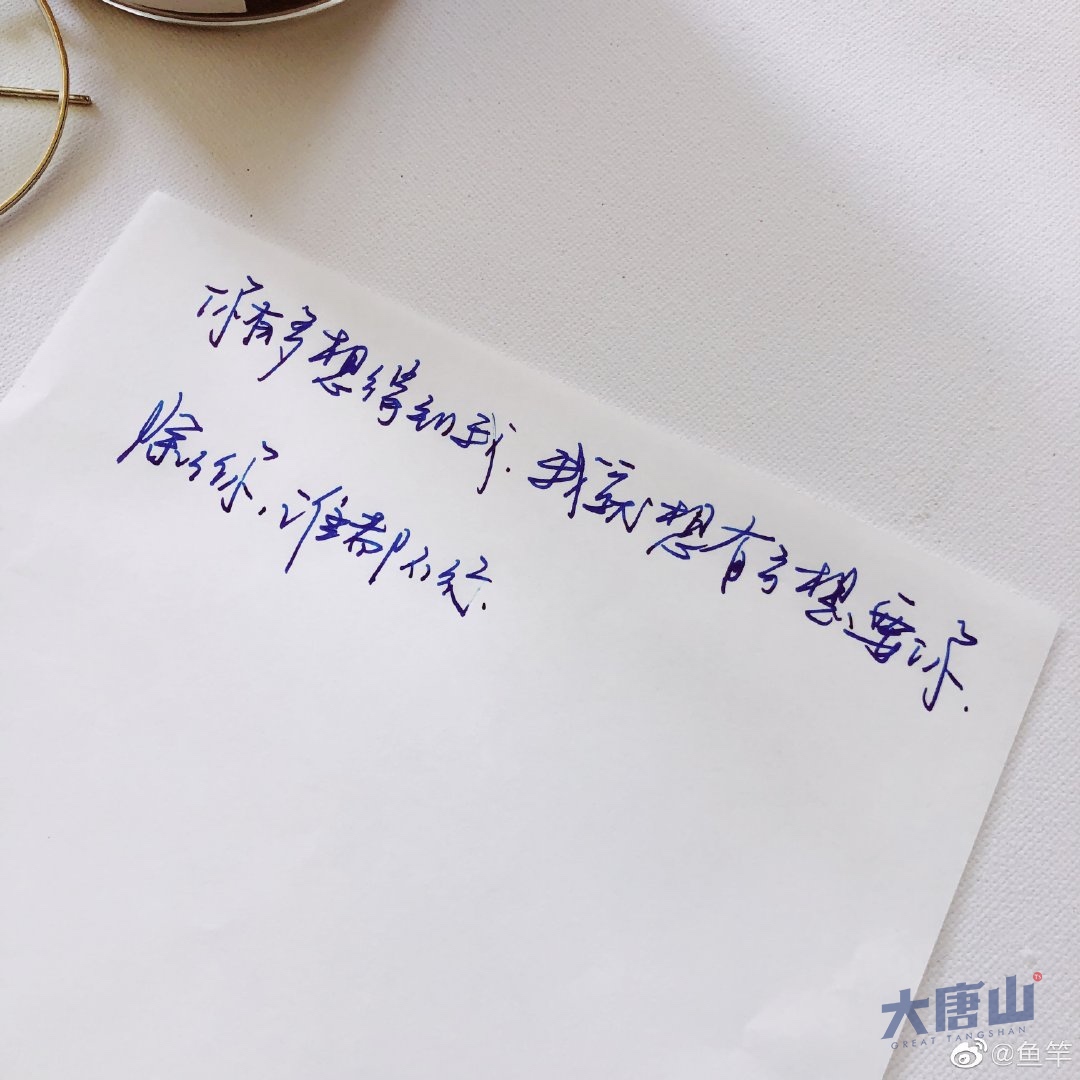 你有多想得到我.我就想有多想要你.
除了你,谁都不行.
大唐山
TS
GREAT TANGSHAN
@鱼竿